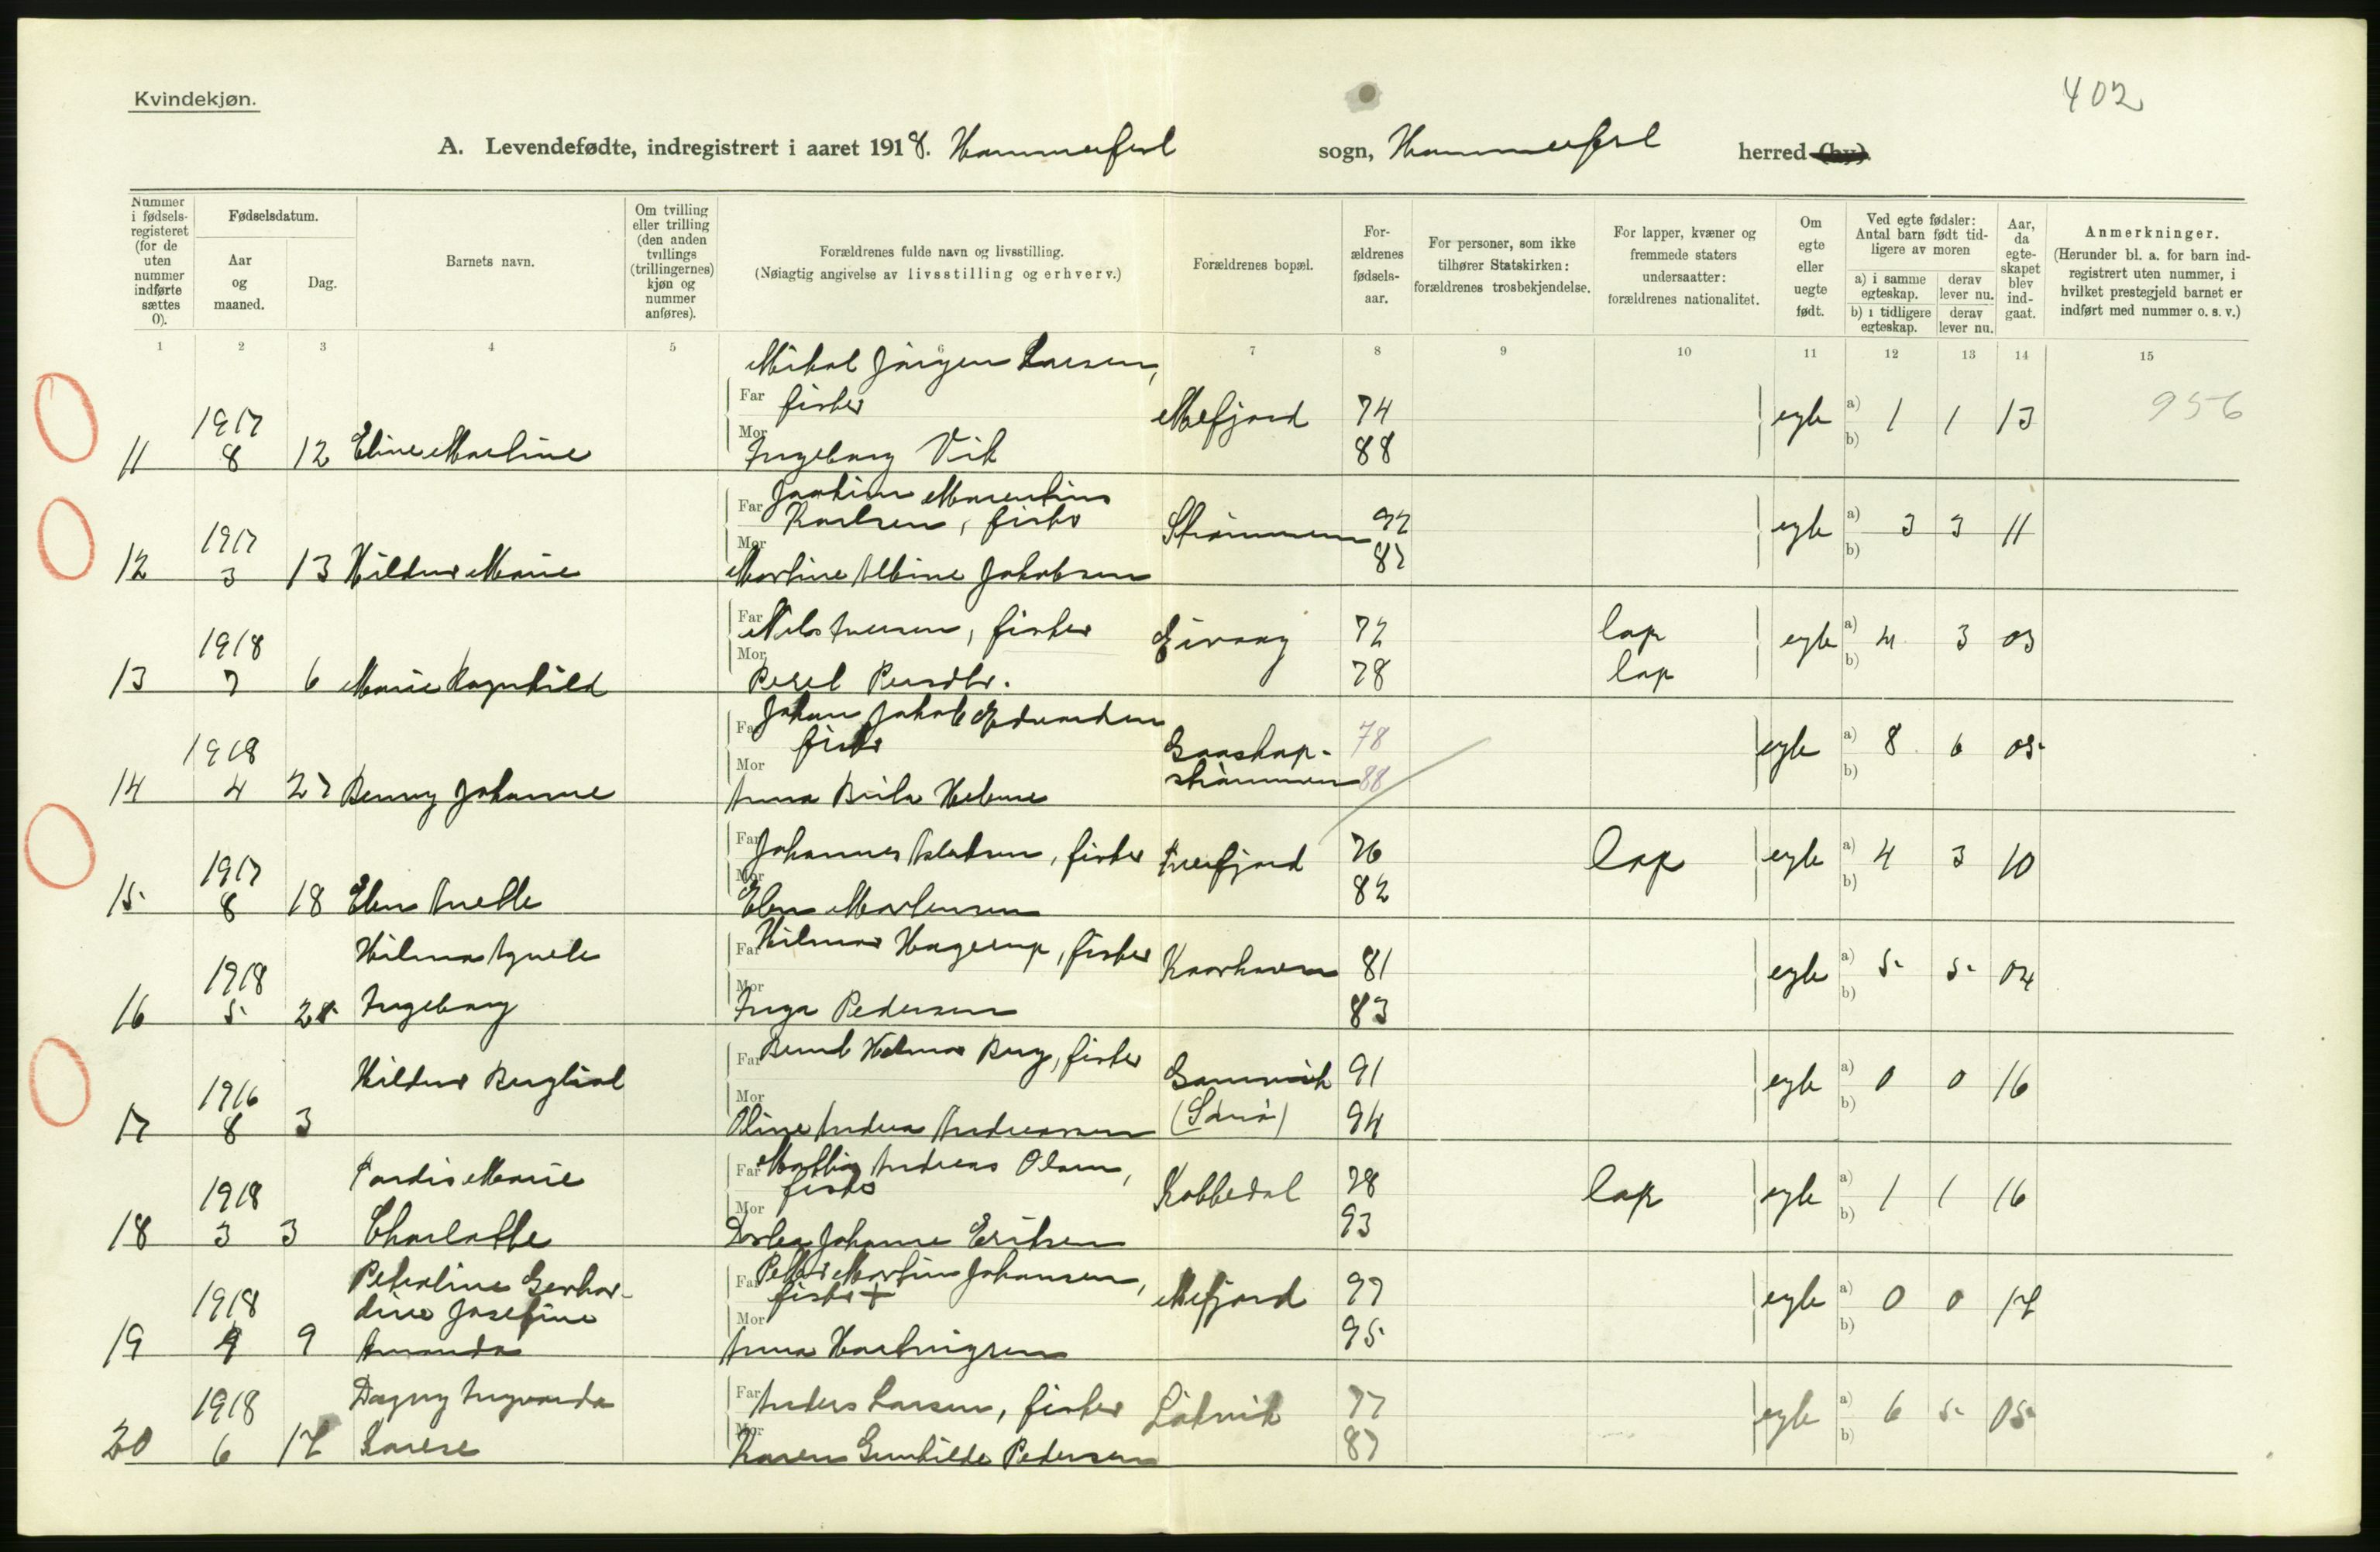 Kvindekjøn.
402
A. Levendefødte, indregistrert i aaret 1918. Hammerfest sogn, Hammerfest herred (by)
Nummer i fødsels-registeret (for de uten nummer indførte sættes 0).
Fødselsdatum.
Aar og maaned.
Dag.
Barnets navn.
Om tvilling eller trilling (den anden tvillings (trillingernes) kjøn og nummer anføres).
Forældrenes fulde navn og livsstilling.
(Nøiagtig angivelse av livsstilling og erhverv.)
Forældrenes bopæl.
For-ældrenes fødsels-aar.
For personer, som ikke tilhører Statskirken: forældrenes trosbekjendelse.
For lapper, kvæner og fremmede staters undersaatter: forældrenes nationalitet.
Om egte eller uegte født.
Ved egte fødsler: Antal barn født tid-ligere av moren
a) i samme egteskap.
derav lever nu.
b) i tidligere egteskap.
derav lever nu.
Aar, da egte-skapet blev ind-gaat.
Anmerkninger.
(Herunder bl. a. for barn ind-registrert uten nummer, i hvilket prestegjeld barnet er indført med nummer o. s. v.)
1 2 3 4 5 6 7 8 9 10 11 12 13 14 15
Mikal Jörgen Larsen,
Far fisker Mefjord 74 egte a) 1 1 13 956
1917
Mor b)
11 8 12 Eline Martine Ingeborg Vik 88
Far Joakim Marentius
Karlsen, fisker Strömmen 92 egte a) 3 3 11
1917
Mor 87 b)
12 3 13 Hildur Marie Martine Albine Jakobsen
Far Nils Iversen, fisker Eivaag 72 lap egte a) 4 3 03
1918
Mor b)
13 7 6 Marie Ragnhild Persdtr. 78 lap
Far Johan Jakob Edvardsen
fisker Gaaskap- 78 egte a) 8 6 05
1918
Mor strömmen 88 b)
14 4 27 Benny Johanne Anna Helene
Far Johannes Aslaksen, fisker Revfjord 76 lap egte a) 4 3 10
1917
Mor b)
15 8 18 Elen Anette Elen Mortensen 82
Hilma Agnete
Far Hilmar Hagerup, fisker Kaarhavn 81 egte a) 5 5 04
1918
Mor b)
16 5 25 Ingeborg Inga Pedersen 83
Far Bernt Hilmar Berg, fisker Gammvik 91 egte a) 0 0 16
Hildur Bergliot
1916
Mor (Sörö) b)
17 8 3 Oline Andrea Andreassen 94
Far Mathis Andreas Olsen,
fisker Kobbedal 78 lap egte a) 1 1 16
Tordis Marie
1918
Mor b)
18 3 3 Charlotte Dortea Johanne Eriksen 93
Petroline Gerhar-
Far Peder Martin Johansen,
fisker + Mefjord 97 egte a) 0 0 17
1918 dine Josefine
Mor b)
19 4 9 Amanda Anna Hartvigsen 95
Dagny Ingvarda
Far Anders Larsen, fisker Latvik 77 egte a) 6 5 05
1918
Mor b)
20 6 17 Lovise Karen Gunhilde Pedersen 87